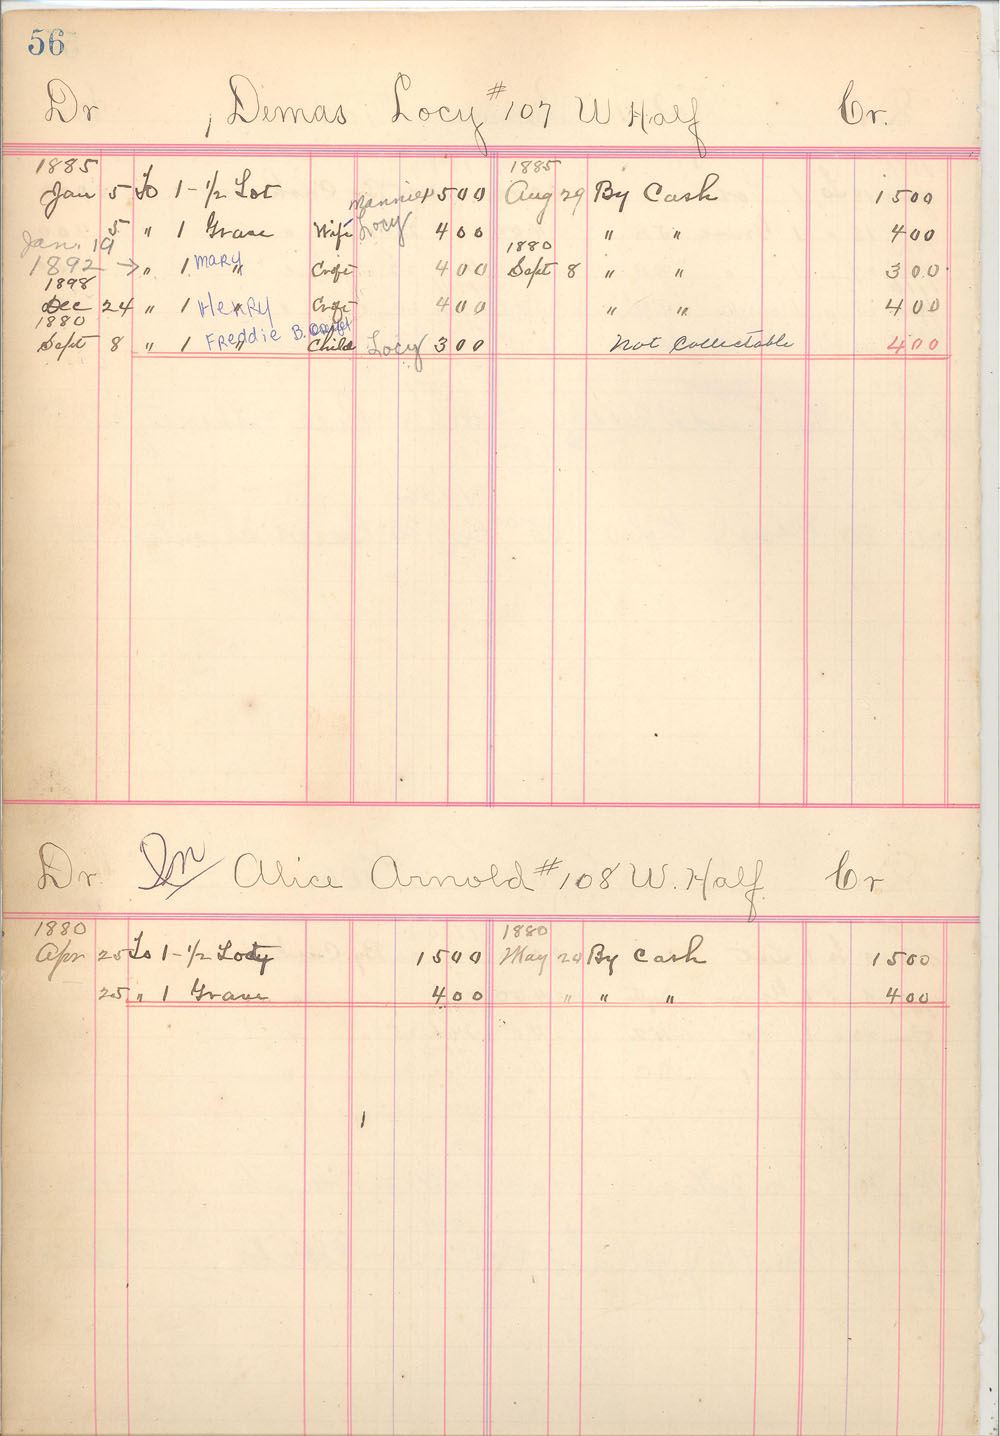 56
Dr Demas Locy #107 W Half Cr.
1885 1885
Jan 5 To 1-1/2 Lot 500 Aug 29 By Cash 1500
5 " 1 Grave Wife Locy 400 " " 400
Jan. 19 1880
1892 → " 1 Mary " Croft 400 Sept 8 " " 300
1898
Dec 24 " 1 Henry " Croft 400 " " 400
1880
Sept 8 " 1 Freddie B. " Child Locy 300 Not Collectable 400
Dr. Alice Arnold #108 W. Half Cr
1880 1880
Apr 25 To 1-1/2 Lot 1500 May 20 By Cash 1500
25 " 1 Grave 400 " " " 400